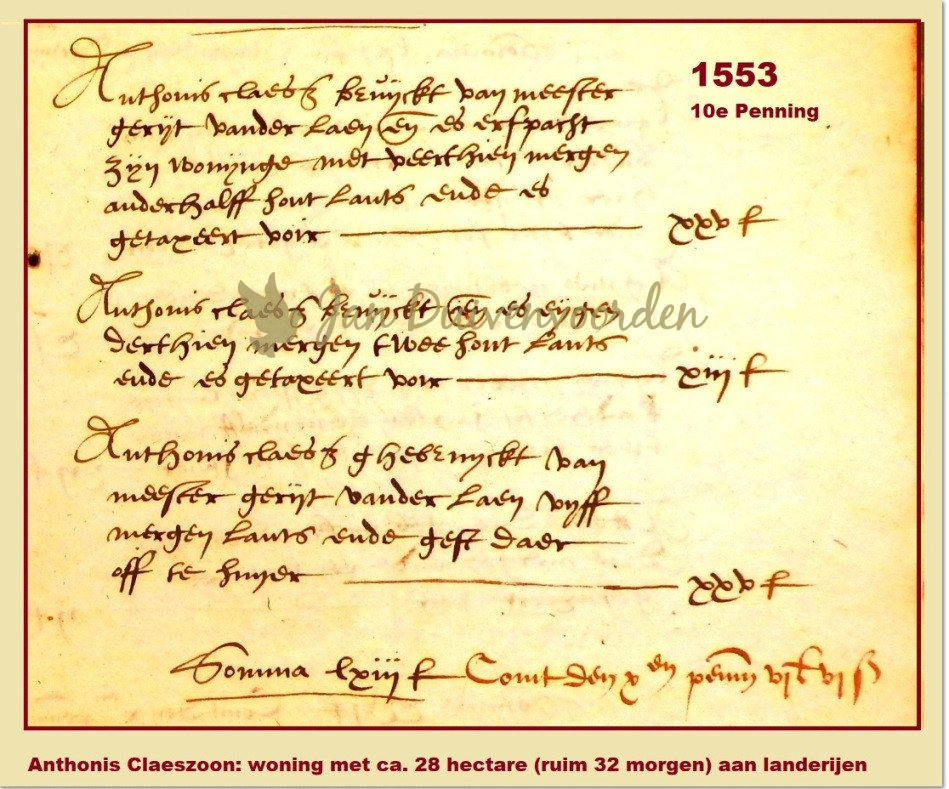 1553
10e Penning
Anthonis claesz bruijckt van meester
gerijt vander laen en es erfpacht
zijn wonijnge met veerthien mergen
anderhalff hont lants ende es
getaxeert voir xxv £
Anthonis claesz bruijckt en es eijgen
derthien mergen twee hont lants
ende es getaxeert voir xiii £
Anthonis claesz ghebruyckt van
meester gerijt vander laen vijff
mergen lants ende geft daer
off te huyer xxv £
Somma lxiii £ Comt den xen penn vi £ vi s
Jan Duivenvoorden
Anthonis Claeszoon: woning met ca. 28 hectare (ruim 32 morgen) aan landerijen